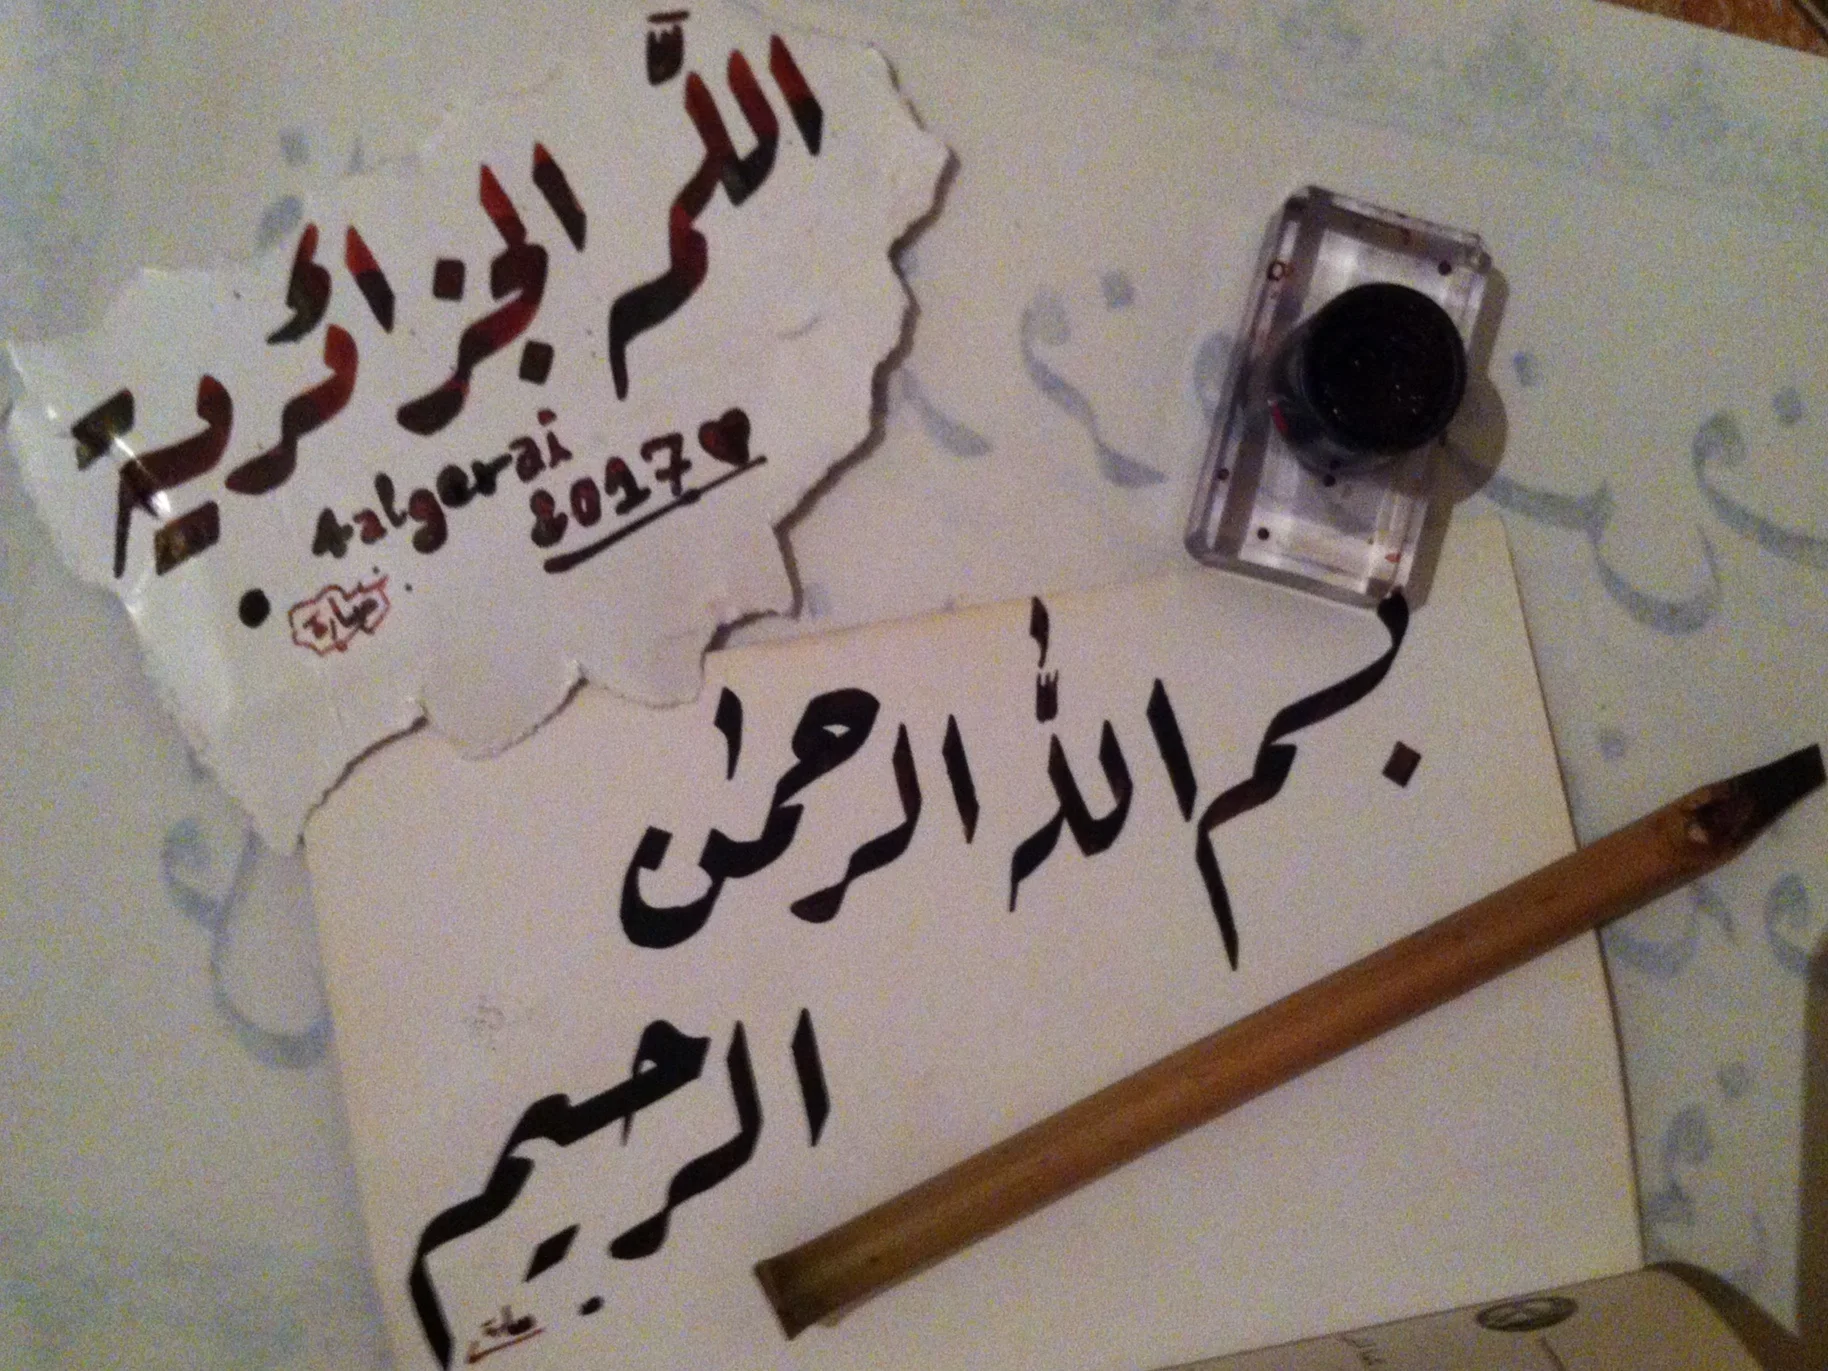 اللَّم الجزائرية
4algerai
2017♥
بسم اللّٰه الرحمٰن
الرحيم